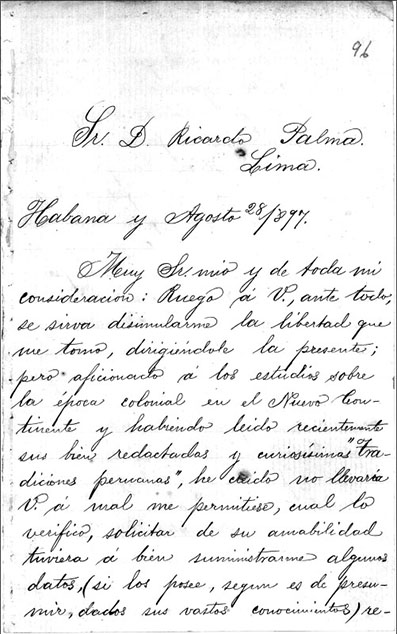 96
Sr. D. Ricardo Palma.
Lima.
Habana y Agosto 28/897.
Muy Sr. mio y de toda mi
consideracion: Ruego á V., ante todo,
se sirva disimularme la libertad que
me tomo, dirigiéndole la presente;
pero aficionado á los estudios sobre
la época colonial en el Nuevo Con-
tinente y habiendo leido recientemente
sus bien redactadas y curiosísimas "Tra-
diciones peruanas", he creido no llevaría
V. á mal me permitiese, cual lo
verifico, solicitar de su amabilidad
tuviera á bien suministrarme algunos
datos, (si los posee, segun es de presu-
mir, dados sus vastos conocimientos) re-